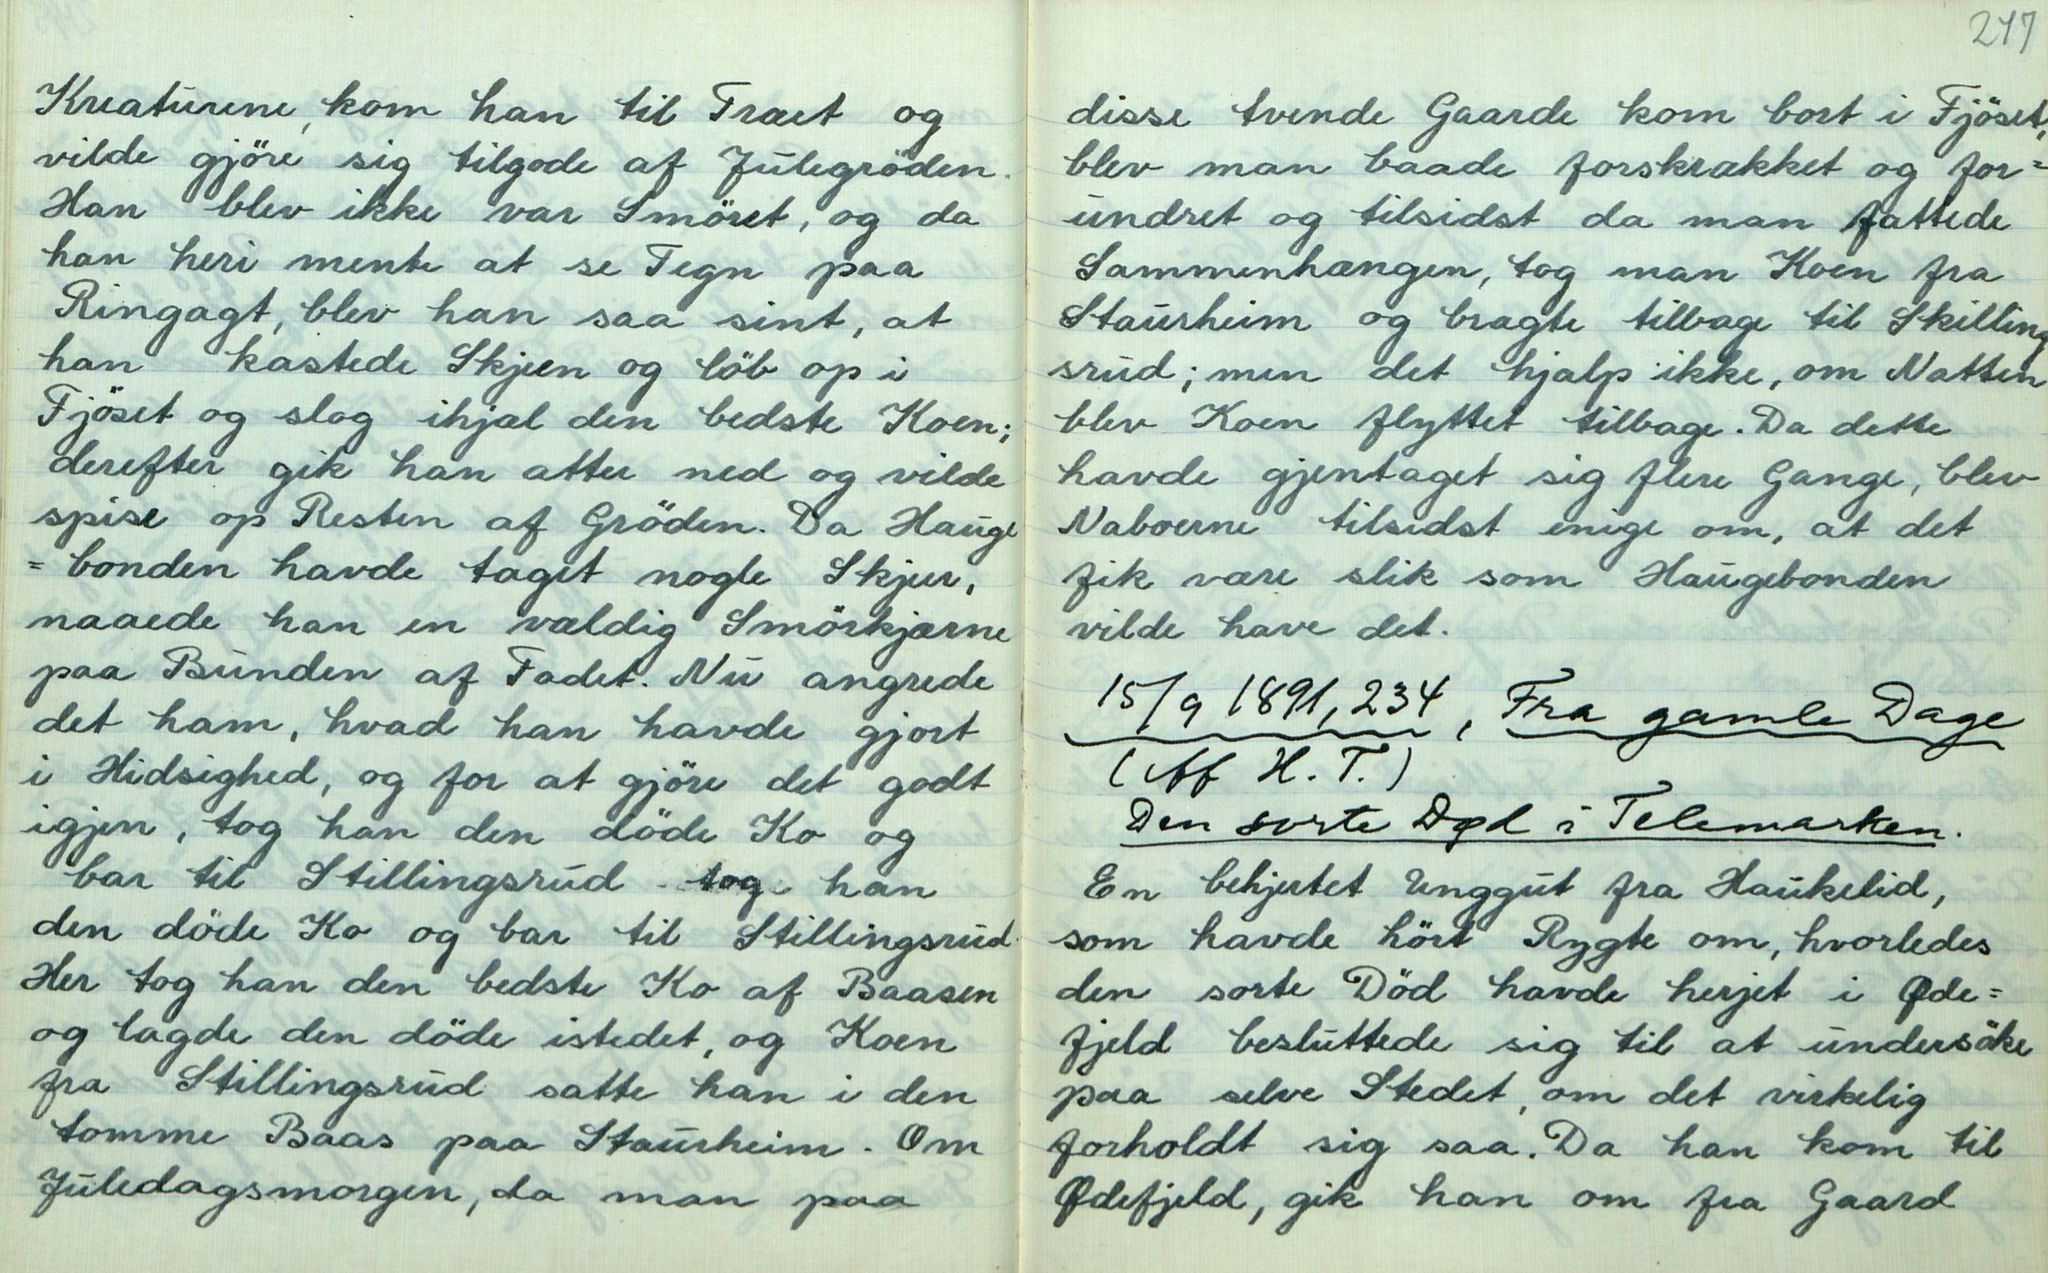 Kreaturene, kom han til Træet og
vilde gjöre sig tilgode af Julegröden.
Han blev ikke var Smöret, og da
han heri mente at se Tegn paa
Ringagt, blev han saa sint, at
han kastede Skjeen og löb op i
Fjöset og slog ihjæl den bedste Koen;
derefter gik han atter ned og vilde
spise op Resten af Gröden. Da Hauge
=bonden havde taget nogle Skjeer,
naaede han en vældig Smörkjærne
paa Bunden af Fadet. Nu angrede
det ham, hvad han havde gjort
i Hidsighed, og for at gjöre det godt
igjen, tog han den döde Ko og
bar til Stillingsrud tog han
den döde Ko og bar til Stillingsrud.
Her tog han den bedste Ko af Baasen
og lagde den döde istedet, og Koen
fra Stillingsrud satte han i den
tomme Baas paa Staurheim. Om
Juledagsmorgen, da man paa
217
disse tvende Gaarde kom bort i Fjöset,
blev man baade forskrækket og for=
undret og tilsidst da man fattede
Sammenhængen, tog man Koen fra
Staurheim og bragte tilbage til Skilling
srud; men det hjalp ikke, om Natten
blev Koen flyttet tilbage. Da dette
havde gjentaget sig flere Gange, blev
Naboerne tilsidst enige om, at det
fik være slik som Haugebonden
vilde have det.
15/9 1891, 234, Fra gamle Dage
(Af H. T.)
Den sorte Død i Telemarken.
En behjertet Unggut fra Haukelid,
som havde hört Rygte om, hvorledes
den sorte Död havde herjet i Øde=
fjeld besluttede sig til at undersöke
paa selve Stedet, om det virkelig
forholdt sig saa. Da han kom til
Ødefjeld, gik han om fra Gaard